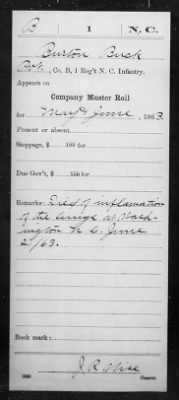 B 1 N. C.
Burton Buck
Pvt., Co. B, 1 Reg't N. C. Infantry.
Appears on
Company Muster Roll
for May & June, 1863.
Present or absent
Stoppage, $ 100 for
Due Gov't, $ 100 for
Remarks: Died of inflamation
of the lungs at Wash-
ington N. C. June
2/63.
Book mark:
Copyist.